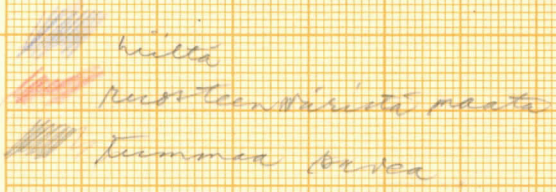 hiiltä
ruosteenväristä maata
tummaa savea